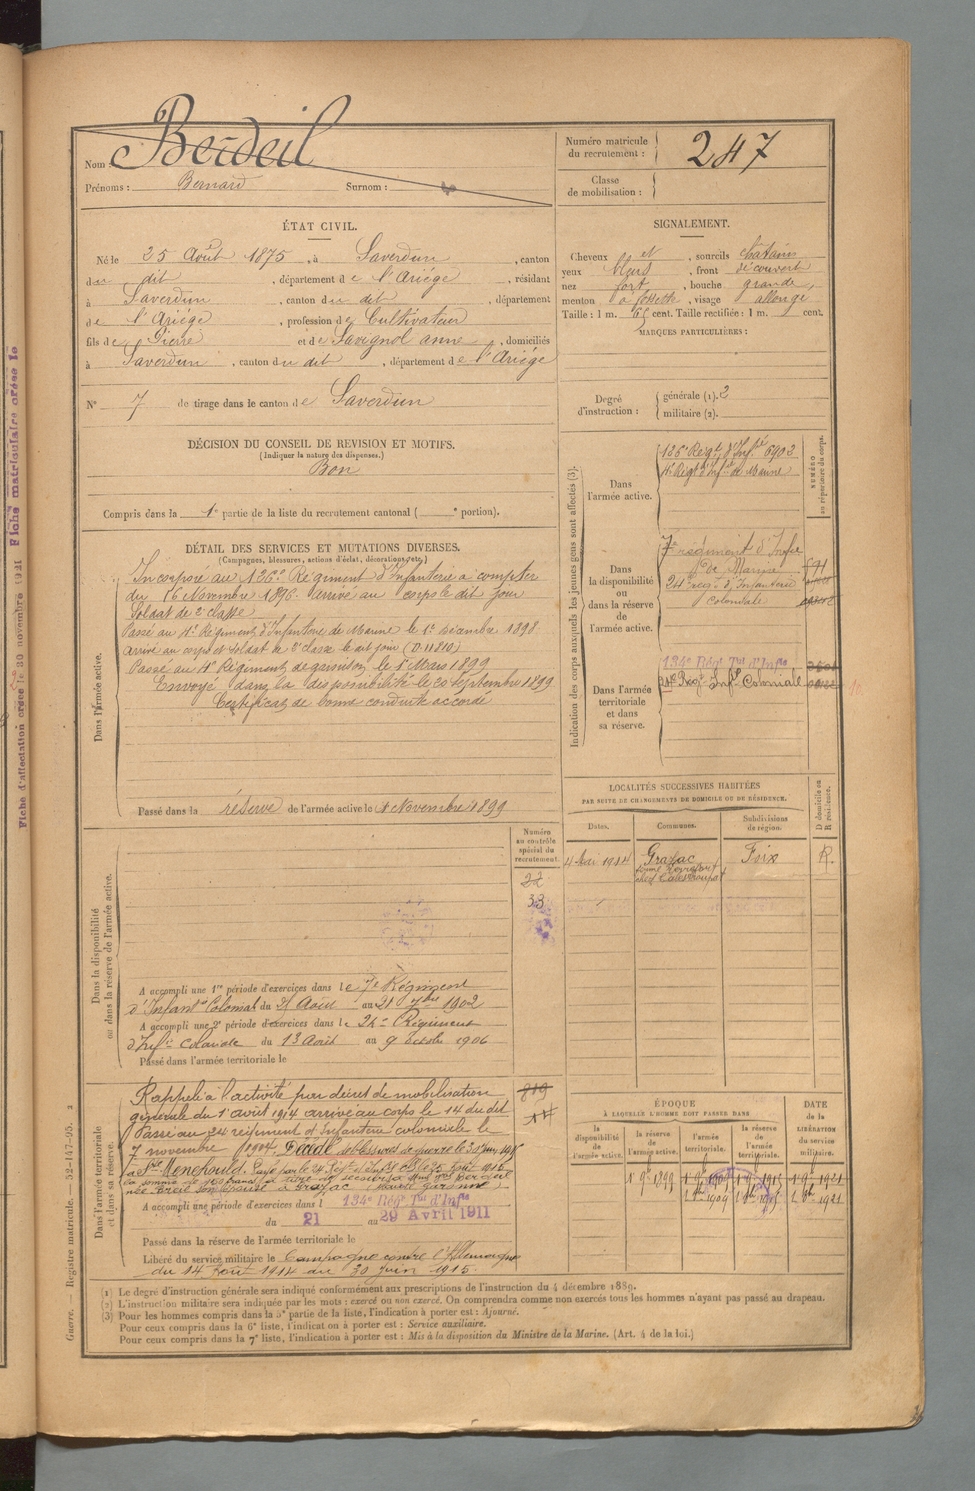 Nom : Berdeil
Prénoms : Bernard Surnom :
Numéro matricule du recrutement : 247
Classe de mobilisation :
ÉTAT CIVIL.
Né le 25 Août 1875, à Saverdun, canton
du dit, département de l'Ariége, résidant
à Saverdun, canton du dit, département
de l'Ariége, profession de Cultivateur
fils de Pierre et de Savignol anne, domiciliés
à Saverdun, canton du dit, département de l'Ariége
N° 7 de tirage dans le canton de Saverdun
SIGNALEMENT.
Cheveux et, sourcils châtains
yeux bleus, front découvert
nez fort, bouche grande,
menton à fossette, visage allongé
Taille : 1 m. 65 cent. Taille rectifiée : 1 m. cent.
MARQUES PARTICULIÈRES :
Degré d'instruction : générale (1). 2
militaire (2).
DÉCISION DU CONSEIL DE REVISION ET MOTIFS.
(Indiquer la nature des dispenses.)
Bon
Compris dans la 1e partie de la liste du recrutement cantonal ( e portion).
DÉTAIL DES SERVICES ET MUTATIONS DIVERSES.
(Campagnes, blessures, actions d'éclat, décorations, etc.)
Dans l'armée active.
Incorporé au 126e Régiment d'Infanterie à compter
du 16 Novembre 1896. Arrivé au corps le dit jour
Soldat de 2e classe
Passé au 4e Régiment d'Infanterie de Marine le 1er décembre 1898
arrivé au corps et soldat de 2e classe le dit jour (D. 11810)
Passé au 4e Régiment de garnison le 1er Mars 1899
Envoyé dans la disponibilité le 20 septembre 1899
Certificat de bonne conduite accordé
Passé dans la réserve de l'armée active le 1 Novembre 1899
Indication des corps auxquels les jeunes gens sont affectés (3).
NUMÉRO au répertoire du corps.
Dans l'armée active.
126e Regt d'Infté 6902
4e Regt d'Infie de Marine
Dans la disponibilité ou dans la réserve de l'armée active.
7e régiment d'Infie
de Marine
24e regt d'Infanterie
coloniale
Dans l'armée territoriale et dans sa réserve.
134e Régt Tal d'Infie
24e Regt Infie Coloniale
LOCALITÉS SUCCESSIVES HABITÉES
PAR SUITE DE CHANGEMENTS DE DOMICILE OU DE RÉSIDENCE.
Dates. Communes. Subdivisions de région. D domicile ou R résidence.
4 Mai 1914 Grazac Foix R.
Numéro au contrôle spécial du recrutement.
22
33
Dans la disponibilité ou dans la réserve de l'armée active.
A accompli une 1re période d'exercices dans le 7e Régiment
d'Infantie Colonial du 25 Août au 21 7bre 1902
A accompli une 2e période d'exercices dans le 24e Régiment
d'Infie Coloniale du 13 Août au 9 Octobre 1906
Passé dans l'armée territoriale le
Dans l'armée territoriale et dans sa réserve.
819
Rappelé à l'activité par décret de mobilisation
générale du 1er août 1914 arrivé au corps le 14 du dit
Passé au 24 régiment d'Infanterie coloniale le
7 novembre 1914. Décédé de blessures de guerre le 30 juin 1915
à Ste Menehould.
née Breil son épouse à Grazac Haute garonne
A accompli une période d'exercices dans l 134e Régt Tal d'Infie
du 21 au 29 Avril 1911
Passé dans la réserve de l'armée territoriale le
Libéré du service militaire le Campagne contre l'Allemagne
du 14 Août 1914 au 30 Juin 1915.
ÉPOQUE
À LAQUELLE L'HOMME DOIT PASSER DANS
la disponibilité de l'armée active. la réserve de l'armée active. l'armée territoriale. la réserve de l'armée territoriale.
DATE de la LIBÉRATION du service militaire.
(1) Le degré d'instruction générale sera indiqué conformément aux prescriptions de l'instruction du 4 décembre 1889.
(2) L'instruction militaire sera indiquée par les mots : exercé ou non exercé. On comprendra comme non exercés tous les hommes n'ayant pas passé au drapeau.
(3) Pour les hommes compris dans la 5e partie de la liste, l'indication à porter est : Ajourné.
Pour ceux compris dans la 6e liste, l'indication à porter est : Service auxiliaire.
Pour ceux compris dans la 7e liste, l'indication à porter est : Mis à la disposition du Ministre de la Marine. (Art. 4 de la loi.)
Guerre. — Registre matricule. — 52-147-95.
Fiche d'affectation créée le 30 novembre 1921 Fiche matriculaire créée le